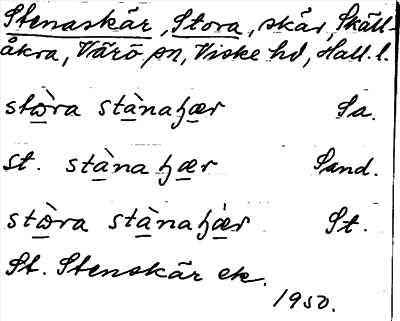 Stenaskär, Stora, skär, Skäll-
åkra, Värö sn, Viske hd, Hall. l.
stὼra stànaʃær Sa.
st. stànaʃær Sand.
stὼra stànaʃæ̀r St.
St. Stenskär ek.
1950.